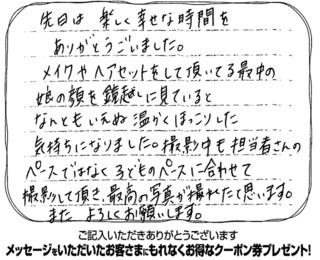 先日は 楽しく幸せな時間を
ありがとうございました。
メイクやヘアセットをして頂いてる最中の
娘の顔を鏡越しに見ていると
なんともいえぬ温かくほっこりした
気持ちになりました。撮影中も担当者さんの
ペースではなく子どものペースに合わせて
撮影して頂き、最高の写真が撮れたて思います。
また よろしくお願いします。
ご記入いただきありがとうございます
メッセージをいただいたお客さまにもれなくお得なクーポン券プレゼント!